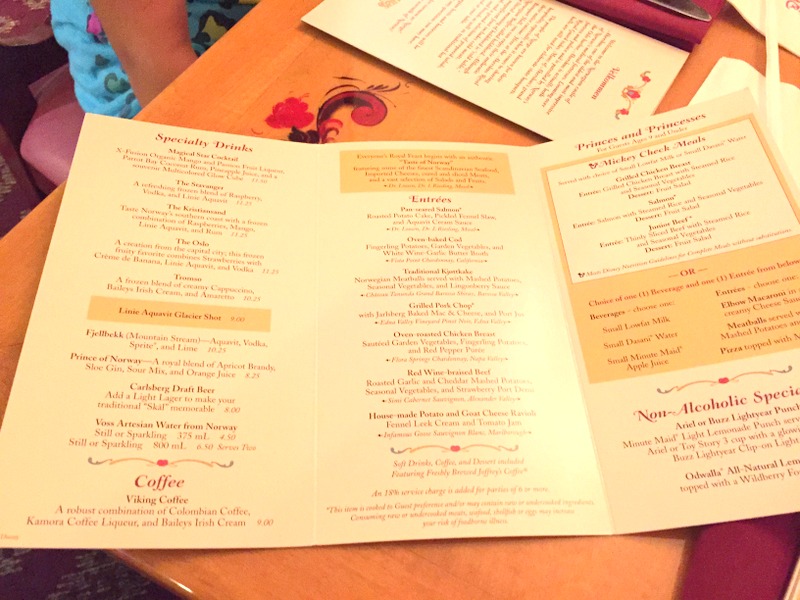 Specialty Drinks
Magical Star Cocktail
X-Fusion Organic Mango and Passion Fruit Liqueur,
Parrot Bay Coconut Rum, Pineapple Juice, and a
souvenir Multicolored Glow Cube 11.50
The Stavanger
A refreshing frozen blend of Raspberry,
Vodka, and Linie Aquavit 11.25
The Kristiansand
Taste Norway's southern coast with a frozen
combination of Raspberries, Mango,
Linie Aquavit, and Rum 11.25
The Oslo
A creation from the capital city; this frozen
fruity favorite combines Strawberries with
Crème de Banana, Linie Aquavit, and Vodka 11.25
Tromsø
A frozen blend of creamy Cappuccino,
Baileys Irish Cream, and Amaretto 10.25
Linie Aquavit Glacier Shot 9.00
Fjellbekk (Mountain Stream)—Aquavit, Vodka,
Sprite®, and Lime 10.25
Prince of Norway—A royal blend of Apricot Brandy,
Sloe Gin, Sour Mix, and Orange Juice 8.25
Carlsberg Draft Beer
Add a Light Lager to make your
traditional "Skål" memorable 8.00
Voss Artesian Water from Norway
Still or Sparkling 375 mL 4.50
Still or Sparkling 800 mL 6.50 Serves Two
Coffee
Viking Coffee
A robust combination of Colombian Coffee,
Kamora Coffee Liqueur, and Baileys Irish Cream 9.00
Everyone's Royal Feast begins with an authentic
"Taste of Norway"
featuring some of the finest Scandinavian Seafood,
Imported Cheeses, cured and sliced Meats,
and a vast selection of Salads and Fruits.
Dr. Loosen, Dr. L Riesling, Mosel
Entrées
Pan-seared Salmon*
Roasted Potato Cake, Pickled Fennel Slaw,
and Aquavit Cream Sauce
Dr. Loosen, Dr. L Riesling, Mosel
Oven-baked Cod
Fingerling Potatoes, Garden Vegetables, and
White Wine-Garlic Butter Broth
Chardonnay, California
Traditional Kjøttkake
Norwegian Meatballs served with Mashed Potatoes,
Seasonal Vegetables, and Lingonberry Sauce
Grilled Pork Chop*
with Jarlsberg Baked Mac & Cheese, and Port Jus
Edna Valley Vineyard Pinot Noir, Edna Valley
Oven-roasted Chicken Breast
Sautéed Garden Vegetables, Fingerling Potatoes,
and Red Pepper Purée
Flora Springs Chardonnay, Napa Valley
Red Wine-braised Beef
Roasted Garlic and Cheddar Mashed Potatoes,
Seasonal Vegetables, and Strawberry Port
Simi Cabernet Sauvignon, Alexander Valley
House-made Potato and Goat Cheese Ravioli
Fennel Leek Cream and Tomato Jam
Infamous Goose Sauvignon Blanc, Marlborough
Soft Drinks, Coffee, and Dessert included
Featuring Freshly Brewed Joffrey's Coffee®
An 18% service charge is added for parties of 6 or more.
*This item is cooked to Guest preference and/or may contain raw or undercooked ingredients.
Consuming raw or undercooked meats, seafood, shellfish or eggs may increase
your risk of foodborne illness.
Velkommen
Princes and Princesses
For Guests Ages 9 and Under
Mickey Check Meals
Served with choice of Small Lowfat Milk or Small Dasani® Water
Grilled Chicken Breast
Entrée: Grilled Chicken Breast with Steamed Rice
and Seasonal Vegetables
Dessert: Fruit Salad
Salmon*
Entrée: Salmon with Steamed Rice and Seasonal Vegetables
Dessert: Fruit Salad
Junior Beef*
Entrée: Thinly Sliced Beef with Steamed Rice
and Seasonal Vegetables
Dessert: Fruit Salad
Meets Disney Nutrition Guidelines for Complete Meals without substitutions.
— OR —
Choice of one (1) Beverage and one (1) Entrée from below
Beverages – choose one:
Small Lowfat Milk
Small Dasani® Water
Small Minute Maid®
Apple Juice
Entrées – choose one:
Elbow Macaroni in
creamy Cheese Sau
Meatballs served w
Mashed Potatoes an
Pizza topped with M
Non-Alcoholic Specia
Ariel or Buzz Lightyear Punch
Minute Maid® Light Lemonade Punch serv
Ariel or Toy Story 3 cup with a glowi
Buzz Lightyear Clip-on Light
Odwalla® All-Natural Lem
topped with a Wildberry Fo